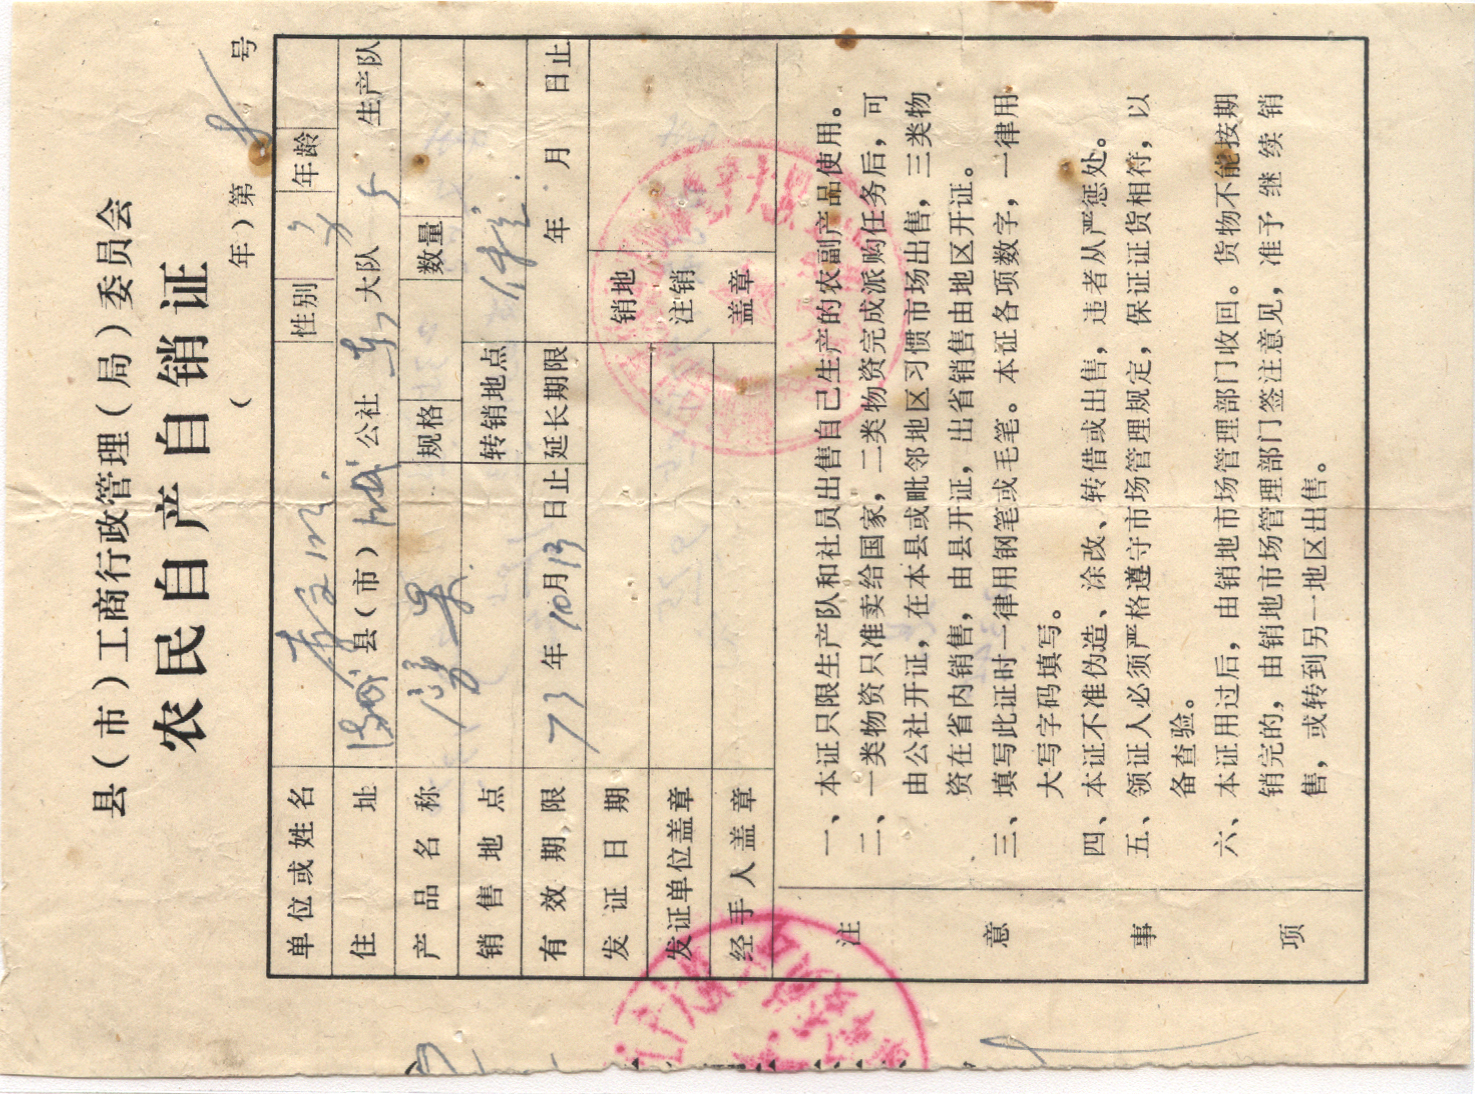 县（市）工商行政管理（局）委员会
农民自产自销证
（ 年）第 号
单位或姓名 性别 年龄
住址 县（市） 城 公社 东 大队 5 生产队
产品名称 苹果 规格 数量
销售地点 转销地点
有效期限 73年10月13日止 延长期限 年 月 日止
发证日期
销地注销盖章
发证单位盖章
经手人盖章
注意事项
一、本证只限生产队和社员出售自己生产的农副产品使用。
二、一类物资只准卖给国家，二类物资完成派购任务后，可
由公社开证，在本县或毗邻地区习惯市场出售，三类物
资在省内销售，由县开证，出省销售由地区开证。
三、填写此证时一律用钢笔或毛笔。本证各项数字，一律用
大写字码填写。
四、本证不准伪造、涂改、转借或出售，违者从严惩处。
五、领证人必须严格遵守市场管理规定，保证证货相符，以
备查验。
六、本证用过后，由销地市场管理部门收回。货物不能按期
销完的，由销地市场管理部门签注意见，准予继续销
售，或转到另一地区出售。